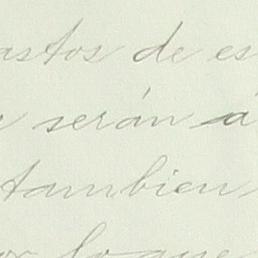 astos de es
serán á
tambien
lo que